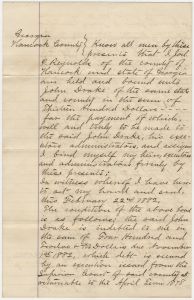 Georgia
Hancock County } Know all men by these
presents that I Joel
E Reynolds of the county of
Hancock and state of Georgia
am held and bound unto
John Drake of the same state
and county in the sum of
Fifteen Hundred Dollars
for the payment of which,
well and truly to be made to
the said John Drake, his
administrators, and assigns
I bind myself my heirs, executors
and administrators firmly by
these presents;
In witness whereof I have here
to set my hand and seal
this February 22nd 1882,
The condition of the above bond
is as follows, the said John
Drake is indebted to me in
the sum of Four Hundred and
Dollars due November
1st 1882, which debt is secured
by an execution issued from the
Superior Court of said county
returnable to the April Term